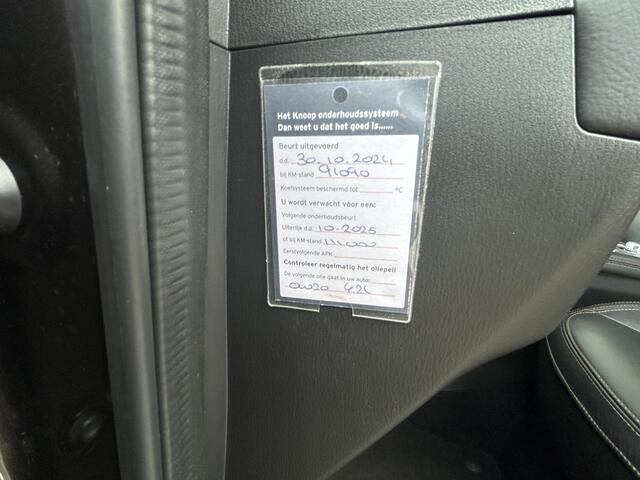 Het Knoop onderhoudssysteem
Dan weet u dat het goed is......
Beurt uitgevoerd
d.d. 30.10.2024
bij KM-stand 91090
Koelsysteem beschermd tot °C
U wordt verwacht voor een:
Volgende onderhoudsbeurt
Uiterlijk d.d. 10.2025
of bij KM-stand 111000
Eerstvolgende APK
Controleer regelmatig het oliepeil
De volgende olie gaat in uw auto:
0W20 4.2L